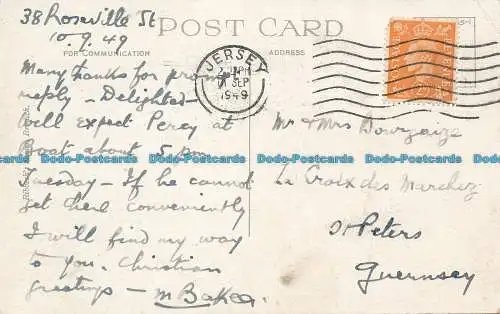 38 Roseville St
10.9.49
POST CARD
FOR COMMUNICATION
ADDRESS
JERSEY
SEP
1949
Many thanks for prompt
reply – Delighted –
Will expect Percy at
Boat about 5 pm
Tuesday – If he cannot
get here conveniently
I will find my way
to you. Christian
greetings – M Baker.
Mr & Mrs
La Croix des
St Peters
Guernsey
Dodo-Postcards Dodo-Postcards Dodo-Postcards Dodo-Postcards Dodo-Postcards